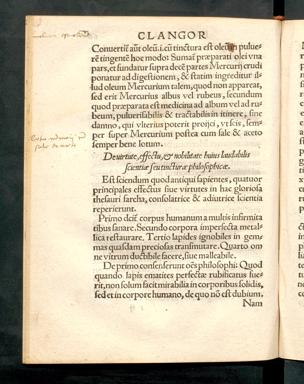 CLANGOR
Convertit aūt oleū.i.eū tinctura est oleum in pulue-
rē tingentē hoc modo: Sumat præparati olei vna
pars, et fundatur supra decē partes Mercurij crudi
ponatur ad digestionem, & statim ingreditur il-
lud oleum Mercurium talem, quod non appareat,
sed erit Mercurius albus vel rubeus, secundum
quod præparata est medicina ad album vel ad ru-
beum, puluerisabilis & tractabilis in itinere, sine
damno, qui vlterius poterit proijci, vt scis, sem-
per super Mercurium postea cum sale & aceto
semper bene lotum.
De virtute, effectu, & nobilitate huius laudabilis
scientiæ seu tincturæ philosophicæ.
Est sciendum quod antiqui sapientes, quatuor
principales effectus siue virtutes in hac gloriosa
thesauri sarcha, consolatrice & adiutrice scientia
repererunt.
Primo dicit corpus humanum a multis infirmita
tibus sanare. Secundo corpora imperfecta metal-
lica restaurare. Tertio lapides ignobiles in gem-
mas quasdam preciosas transmutare. Quarto om
ne vitrum ductibile facere, siue malleabile.
De primo consenserunt oēs philosophi: Quod
quando lapis ematites perfectæ rubificatus fue-
rit, non solum facit mirabilia in corporibus solidis,
sed et in corpore humano, de quo nō est dubium,
Nam